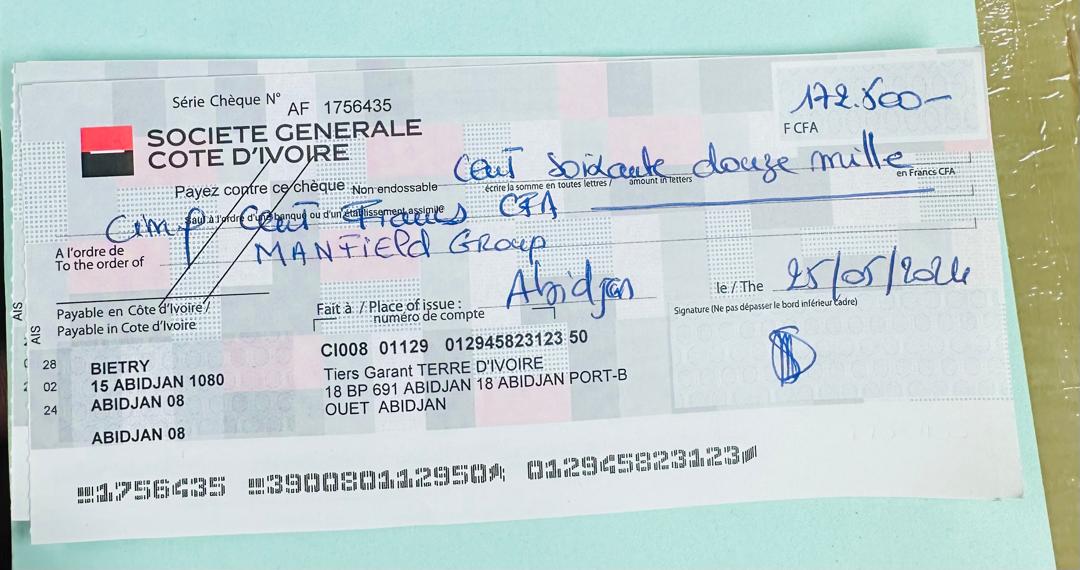 Série Chèque N° AF 1756435
172.500-
F CFA
SOCIETE GENERALE
COTE D'IVOIRE
Payez contre ce chèque Non endossable
Cent Soixante douze mille
écrire la somme en toutes lettres / amount in letters
en Francs CFA
sauf à l'ordre d'une banque ou d'un établissement assimilé
Cinq Cent Francs CFA
A l'ordre de
To the order of
MANField Group
Payable en Côte d'Ivoire /
Payable in Cote d'Ivoire
Fait à / Place of issue : Abidjan
le / The 25/05/2024
numéro de compte
Signature (Ne pas dépasser le bord inférieur cadre)
AIS
AIS
CI008 01129 012945823123 50
28 BIETRY
02 15 ABIDJAN 1080
24 ABIDJAN 08
ABIDJAN 08
Tiers Garant TERRE D'IVOIRE
18 BP 691 ABIDJAN 18 ABIDJAN PORT-B
OUET ABIDJAN
1756435 390080112950 012945823123